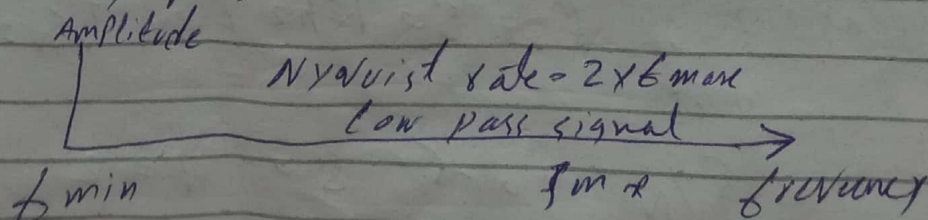 Amplitude
Nyquist rate = 2 x fmax
Low pass signal
f min fmx frequency